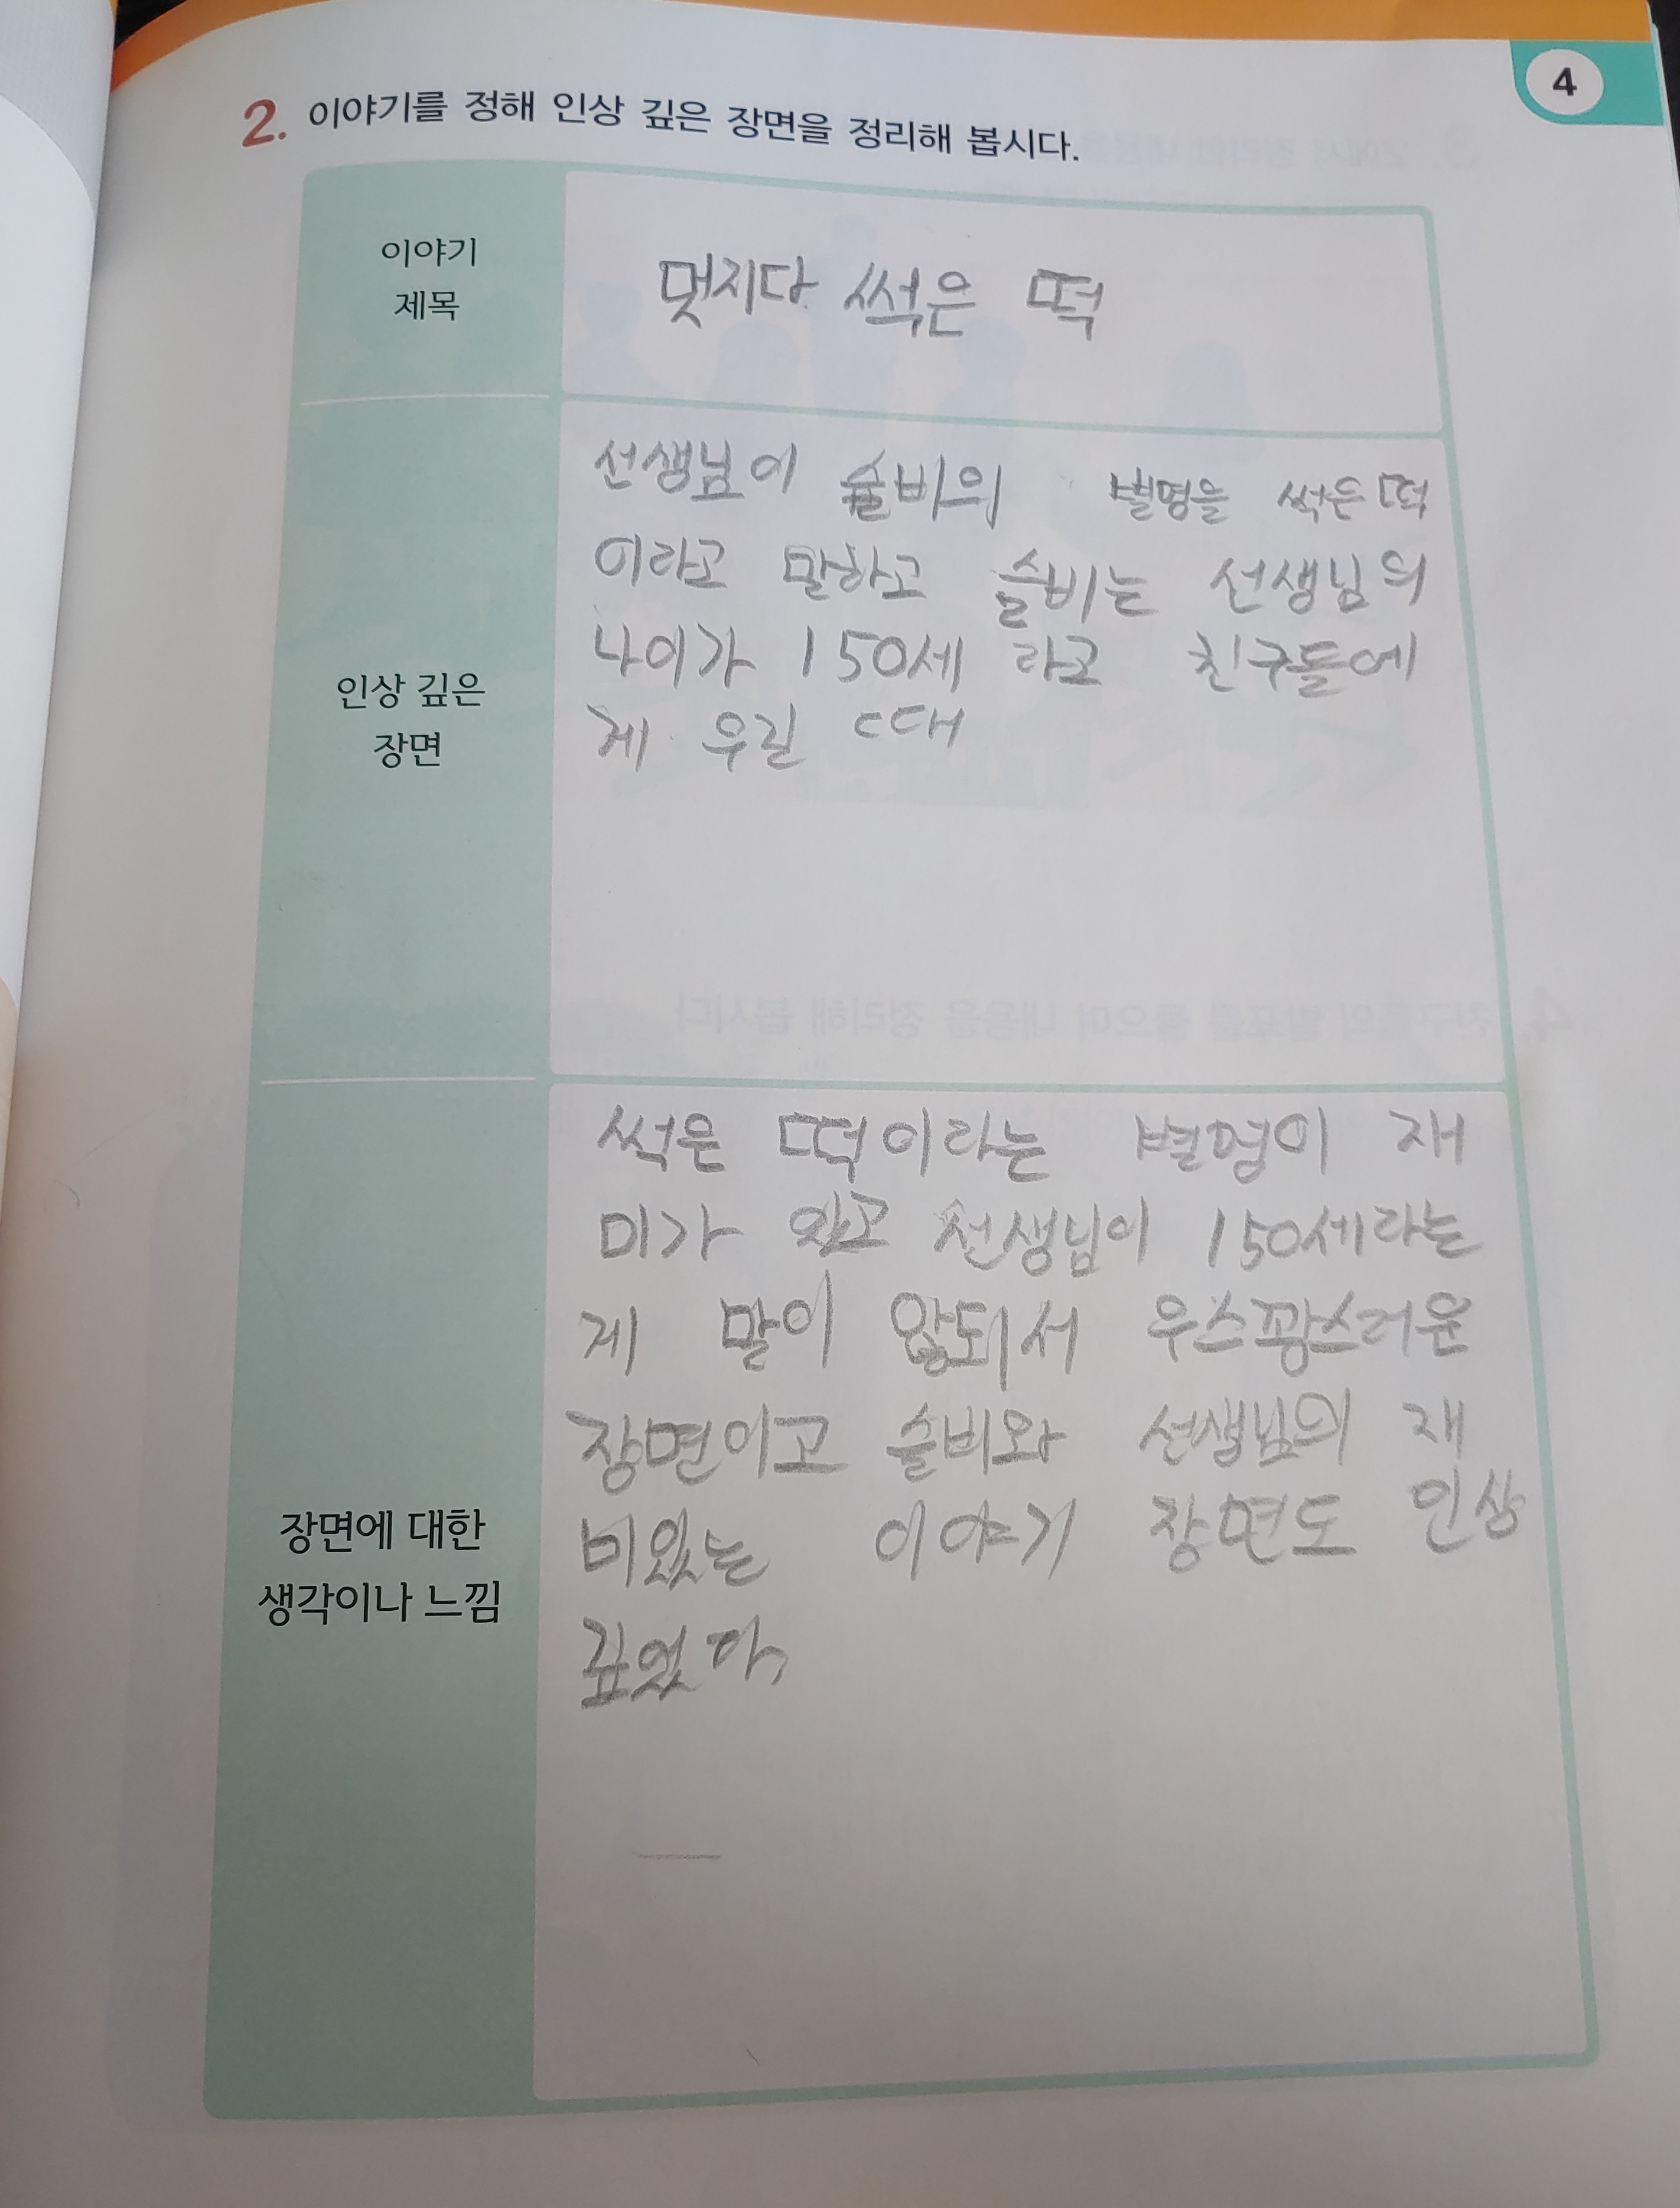 4
2. 이야기를 정해 인상 깊은 장면을 정리해 봅시다.
이야기
제목
멋지다 썩은 떡
인상 깊은
장면
선생님이 슬비의 별명을 썩은 떡
이라고 말하고 슬비는 선생님의
나이가 150세 라고 친구들에
게 우길 때
장면에 대한
생각이나 느낌
썩은 떡이라는 별명이 재
미가 있고 선생님이 150세라는
게 말이 않되서 우스꽝스러운
장면이고 슬비와 선생님의 재
미있는 이야기 장면도 인상
깊었다,